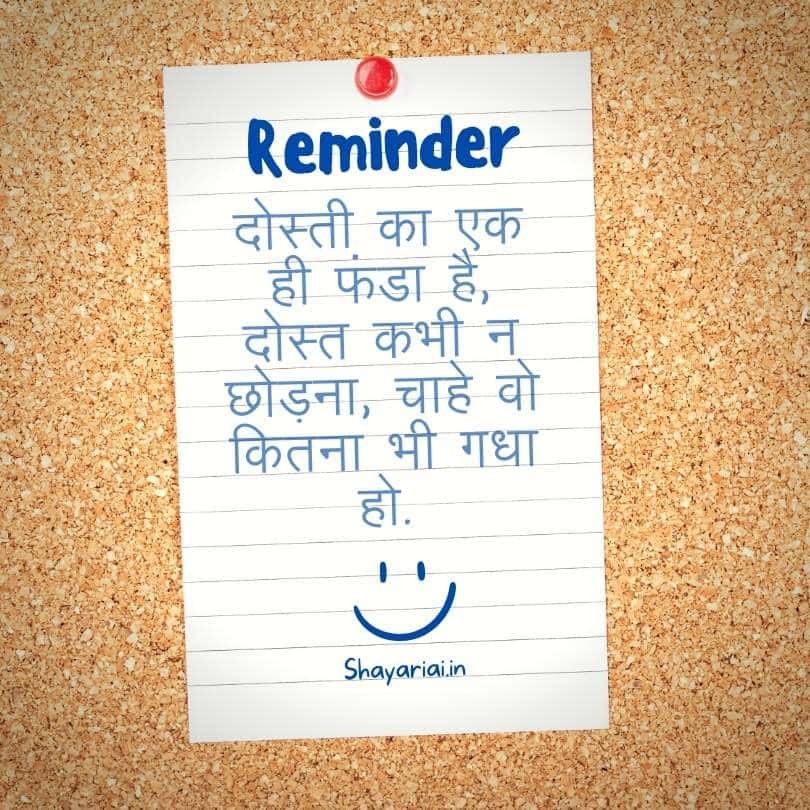 Reminder
दोस्ती का एक
ही फंडा है,
दोस्त कभी न
छोड़ना, चाहे वो
कितना भी गधा
हो.
Shayariai.in